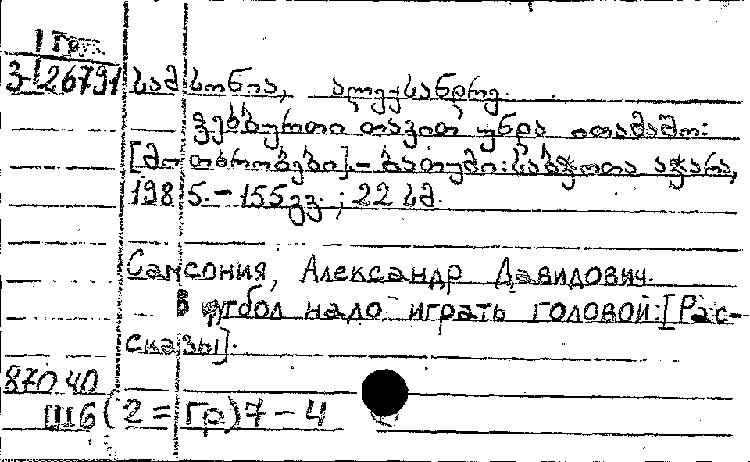 1 Груз.
3-26791 სამსონია, ალექსანდრე.
ფეხბურთი თავით უნდა ითამაშო:
[მოთხრობები].- ბათუმი: საბჭოთა აჭარა,
1985.- 155გვ.; 22 სმ.
Самсония, Александр Давидович.
В футбол надо играть головой: [Рас-
сказы].
870.40
Ш6(2=Гр)7-4